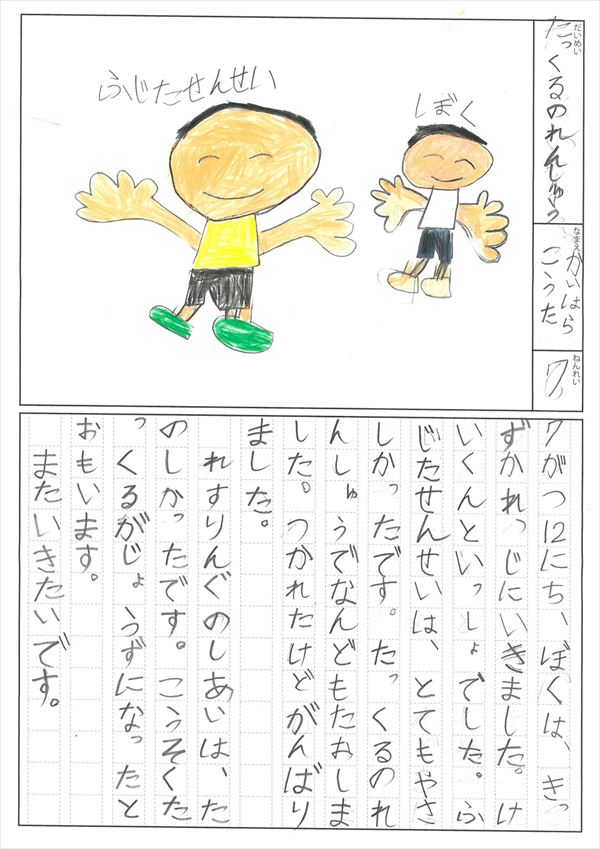 だいめい
たっくるのれんしゅう
なまえ
かいはら
こうた
ねんれい
7
ふじたせんせい
しぼく
7がつ12にち、ぼくは、きっ
ずかれっじにいきました。け
いくんといっしょでした。ふ
じたせんせいは、とてもやさ
しかったです。たっくるのれ
んしゅうでなんどもたおしま
した。つかれたけどがんばり
ました。
れすりんぐのしあいは、た
のしかったです。こうそくた
っくるがじょうずになったと
おもいます。
またいきたいです。